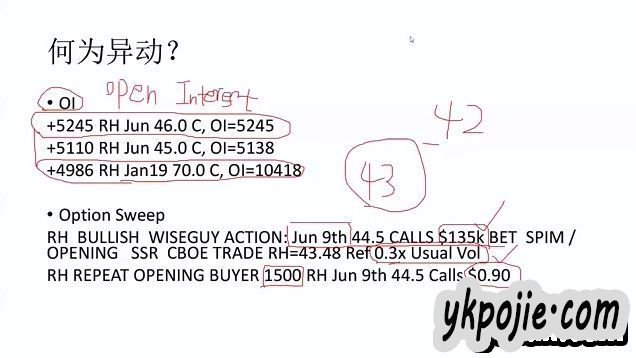 何为异动？
• OI
Open Interest
+5245 RH Jun 46.0 C, OI=5245
+5110 RH Jun 45.0 C, OI=5138
+4986 RH Jan19 70.0 C, OI=10418
42
43
• Option Sweep
RH BULLISH WISEGUY ACTION: Jun 9th 44.5 CALLS $135k BET SPIM /
OPENING SSR CBOE TRADE RH=43.48 Ref 0.3x Usual Vol
RH REPEAT OPENING BUYER 1500 RH Jun 9th 44.5 Calls $0.90
ykpojie.com